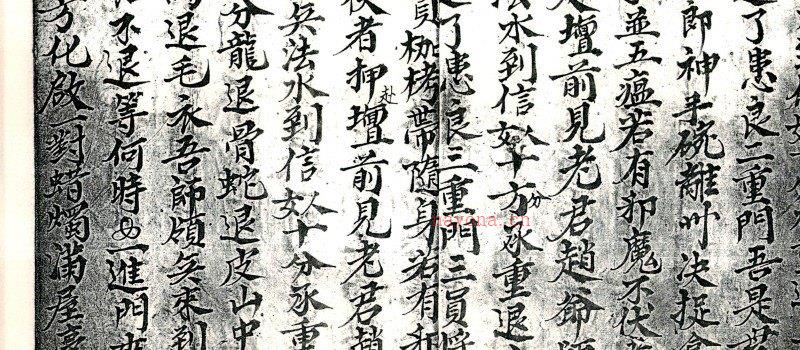 了患良二重門吾是
郎神手碗離州决捉
並五瘟若有邪魔不伏
壇前見老君趙爺
法水到信女人十方分承重退
了患良三重門三員將
員枷栲帶隨身若有邪
者押赴壇前見老君趙
兵法水到信女人十分承重
分龍退骨蛇退皮山中
退毛衣吾師領兵來到
不退等何時女一進門
方化啟一對蜡燭滿屋
nayona.cn